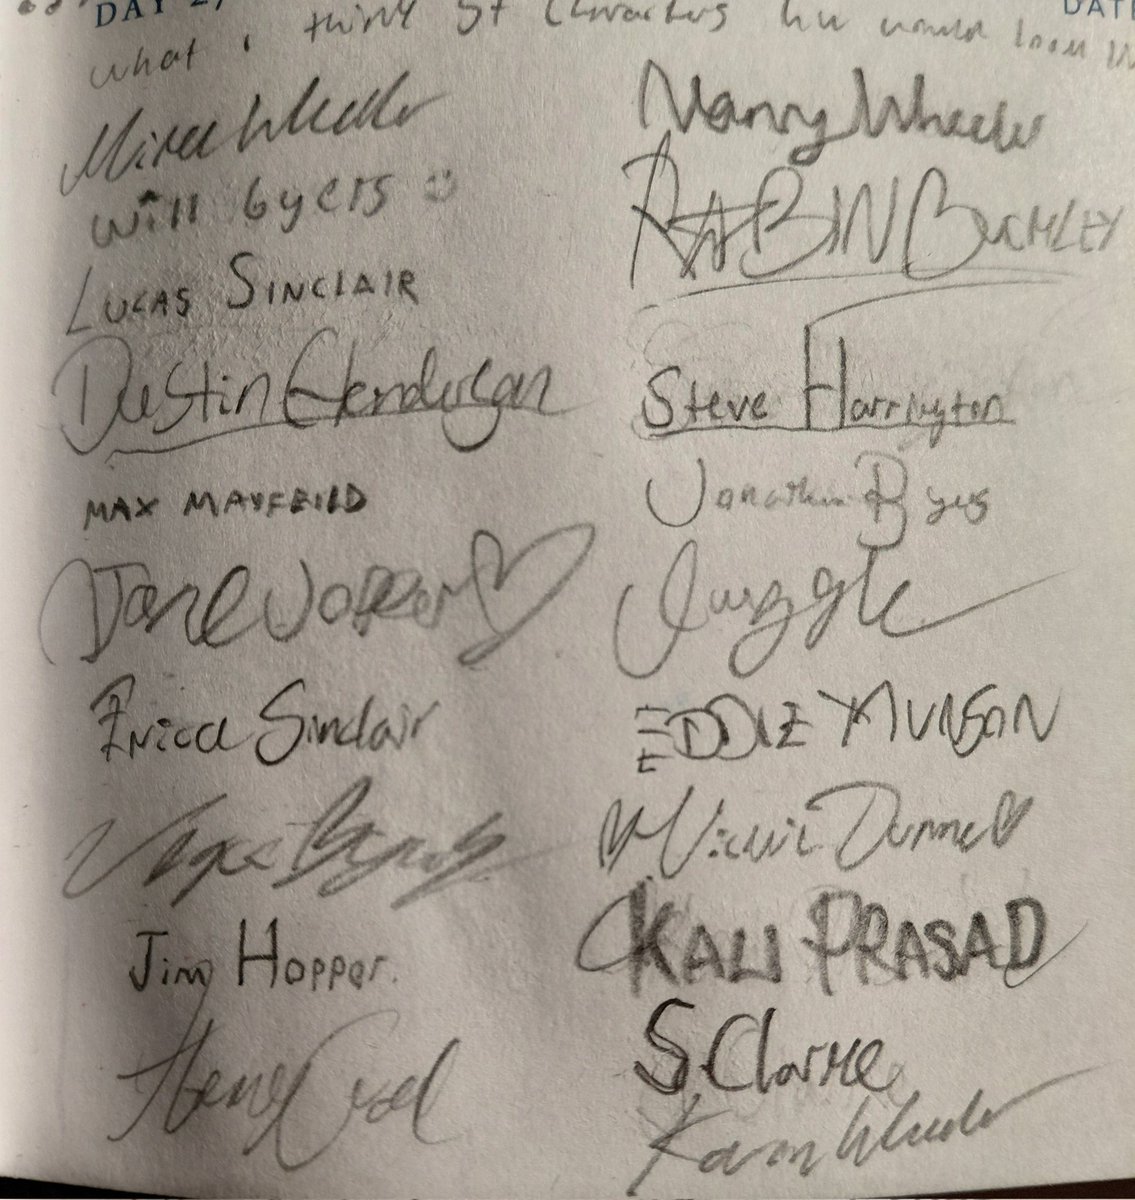 DAY 27
DATE
what i think ST characters hw would look in
Mike Wheeler
Nancy Wheeler
will byers :)
ROBIN BUCKLEY
LUCAS SINCLAIR
Dustin Henderson
Steve Harrington
MAX MAYFEILD
Jonathan Byers
Jane Hopper
EDDIE MUNSON
Erica Sinclair
Vickie Dunne
Byers
KALI PRASAD
Jim Hopper.
S. Clarke
Henry Creel
Karen Wheeler